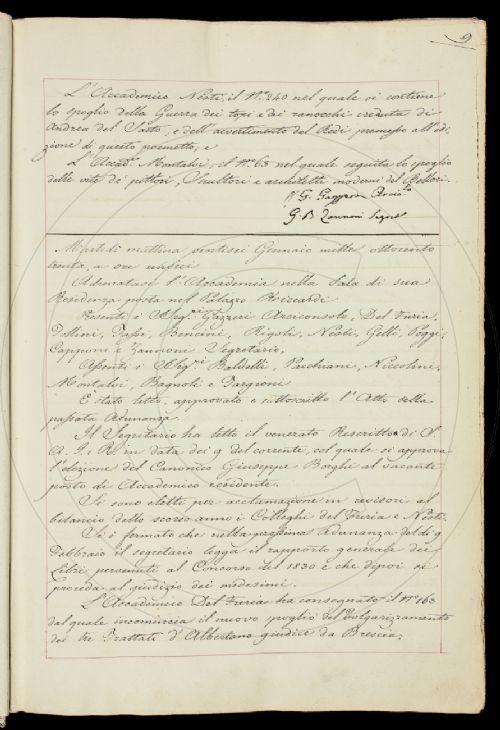 9
L'Accademico Nesti, il N.º 240 nel quale si contiene
lo spoglio della Guerra dei topi e dei ranocchi creduta di
Andrea del Sarto, e dell'avvertimento del Redi premesso all'edi-
zione di questo poemetto, e
L'Accad.º Montalvi, il N.º 63 nel quale seguita lo spoglio
delle vite de' pittori, Scultori e architetti moderni del Bellori.
G. Gazzeri Arcic.º
G. B. Zannoni Segret.
Martedì mattina ventisei Gennaio mille ottocento
trenta, a ore undici
Adunatasi l'Accademia nella Sala di sua
Residenza posta nel Palazzo Riccardi
Presenti i Sigg.ri Gazzeri Arciconsolo, Del Furia,
Follini, Bencini, Rigoli, Nesti, Gelli, Poggi,
Capponi e Zannoni Segretario,
Assenti i Sigg.ri Baldelli, Pacchiani, Niccolini,
Montalvi, Bagnoli e Targioni
È stato letto, approvato e sottoscritto l'Atto della
passata Adunanza.
Il Segretario ha letto il venerato Rescritto di S.
A. I. e R. in data dei 9 del corrente, col quale si approva
l'elezione del Canonico Giuseppe Borghi al vacante
posto di Accademico residente.
Si sono eletti per acclamazione in revisori al
bilancio dello scorso anno i Colleghi del Furia e Nesti.
Si è fermato che nella prossima Adunanza del dì 9
Febbraio il segretario legga il rapporto generale dei
Libri pervenuti al Concorso del 1830 e che dipoi si
proceda al giudizio dei medesimi.
L'Accademico Del Furia ha consegnato il N.º 163
dal quale incomincia il nuovo spoglio del Volgarizzamento
dei tre Trattati d'Albertano giudice da Brescia;